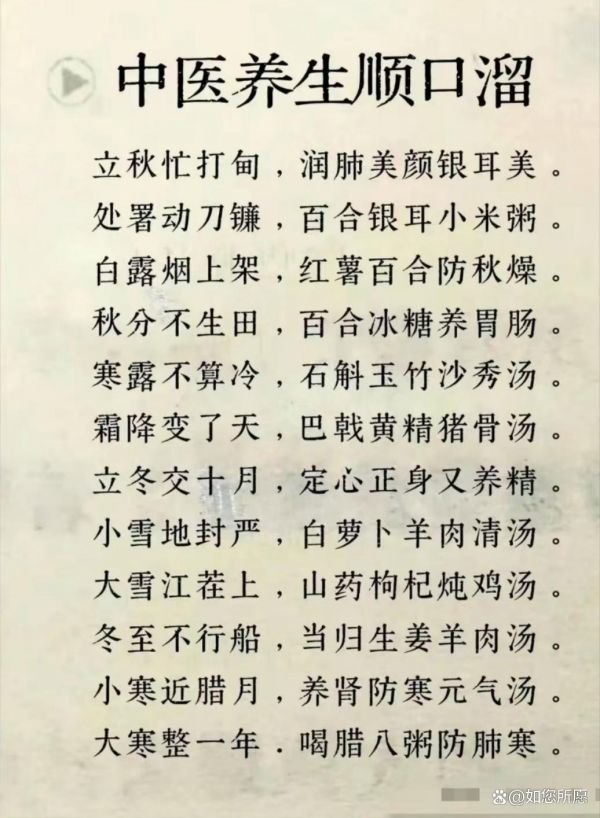 中医养生顺口溜
立秋忙打甸，润肺美颜银耳美。
处署动刀镰，百合银耳小米粥。
白露烟上架，红薯百合防秋燥。
秋分不生田，百合冰糖养胃肠。
寒露不算冷，石斛玉竹沙秀汤。
霜降变了天，巴戟黄精猪骨汤。
立冬交十月，定心正身又养精。
小雪地封严，白萝卜羊肉清汤。
大雪江茬上，山药枸杞炖鸡汤。
冬至不行船，当归生姜羊肉汤。
小寒近腊月，养肾防寒元气汤。
大寒整一年．喝腊八粥防肺寒。
@如您所愿